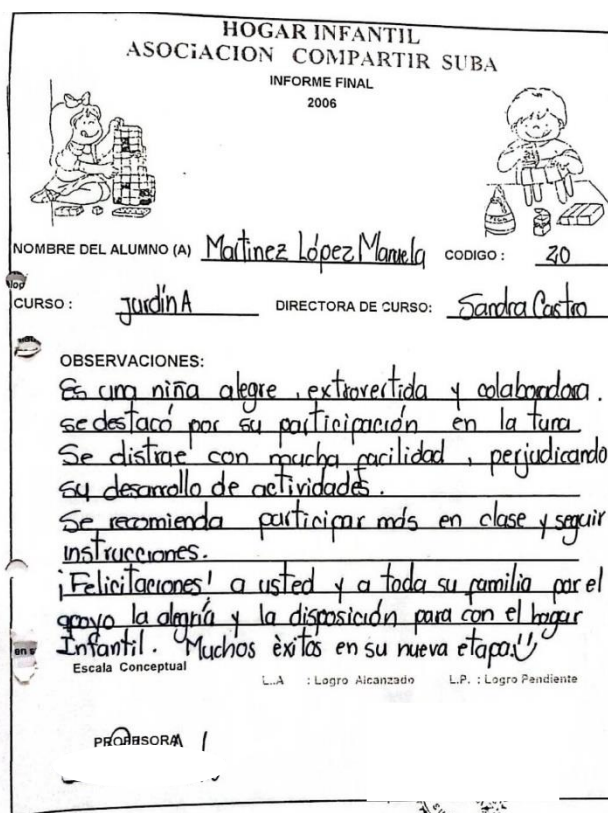 HOGAR INFANTIL
ASOCIACION COMPARTIR SUBA
INFORME FINAL
2006
NOMBRE DEL ALUMNO (A) Martinez López Manuela CODIGO : 20
CURSO : jardín A DIRECTORA DE CURSO: Sandra Castro
OBSERVACIONES:
Es una niña alegre, extrovertida y colaboradora.
se destacó por su participación en la tuna
Se distrae con mucha facilidad, perjudicando
su desarrollo de actividades.
Se recomienda participar más en clase y seguir
instrucciones.
¡Felicitaciones! a usted y a toda su familia por el
apoyo la alegría y la disposición para con el hogar
Infantil. Muchos èxitos en su nueva etapa.
Escala Conceptual
L.A : Logro Alcanzado L.P. : Logro Pendiente
PROFESORA